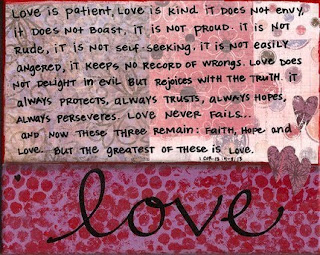 Love is patient, Love is kind. It does not envy,
it does not boast, it is not proud. it is not
rude, it is not self-seeking, it is not easily
angered, it keeps no record of wrongs. Love does
not delight in evil but rejoices with the truth. it
always protects, always trusts, always hopes,
always perseveres. Love never fails...
and now these three remain: faith, hope and
love... but the greatest of these is love.
1 COR 13
love